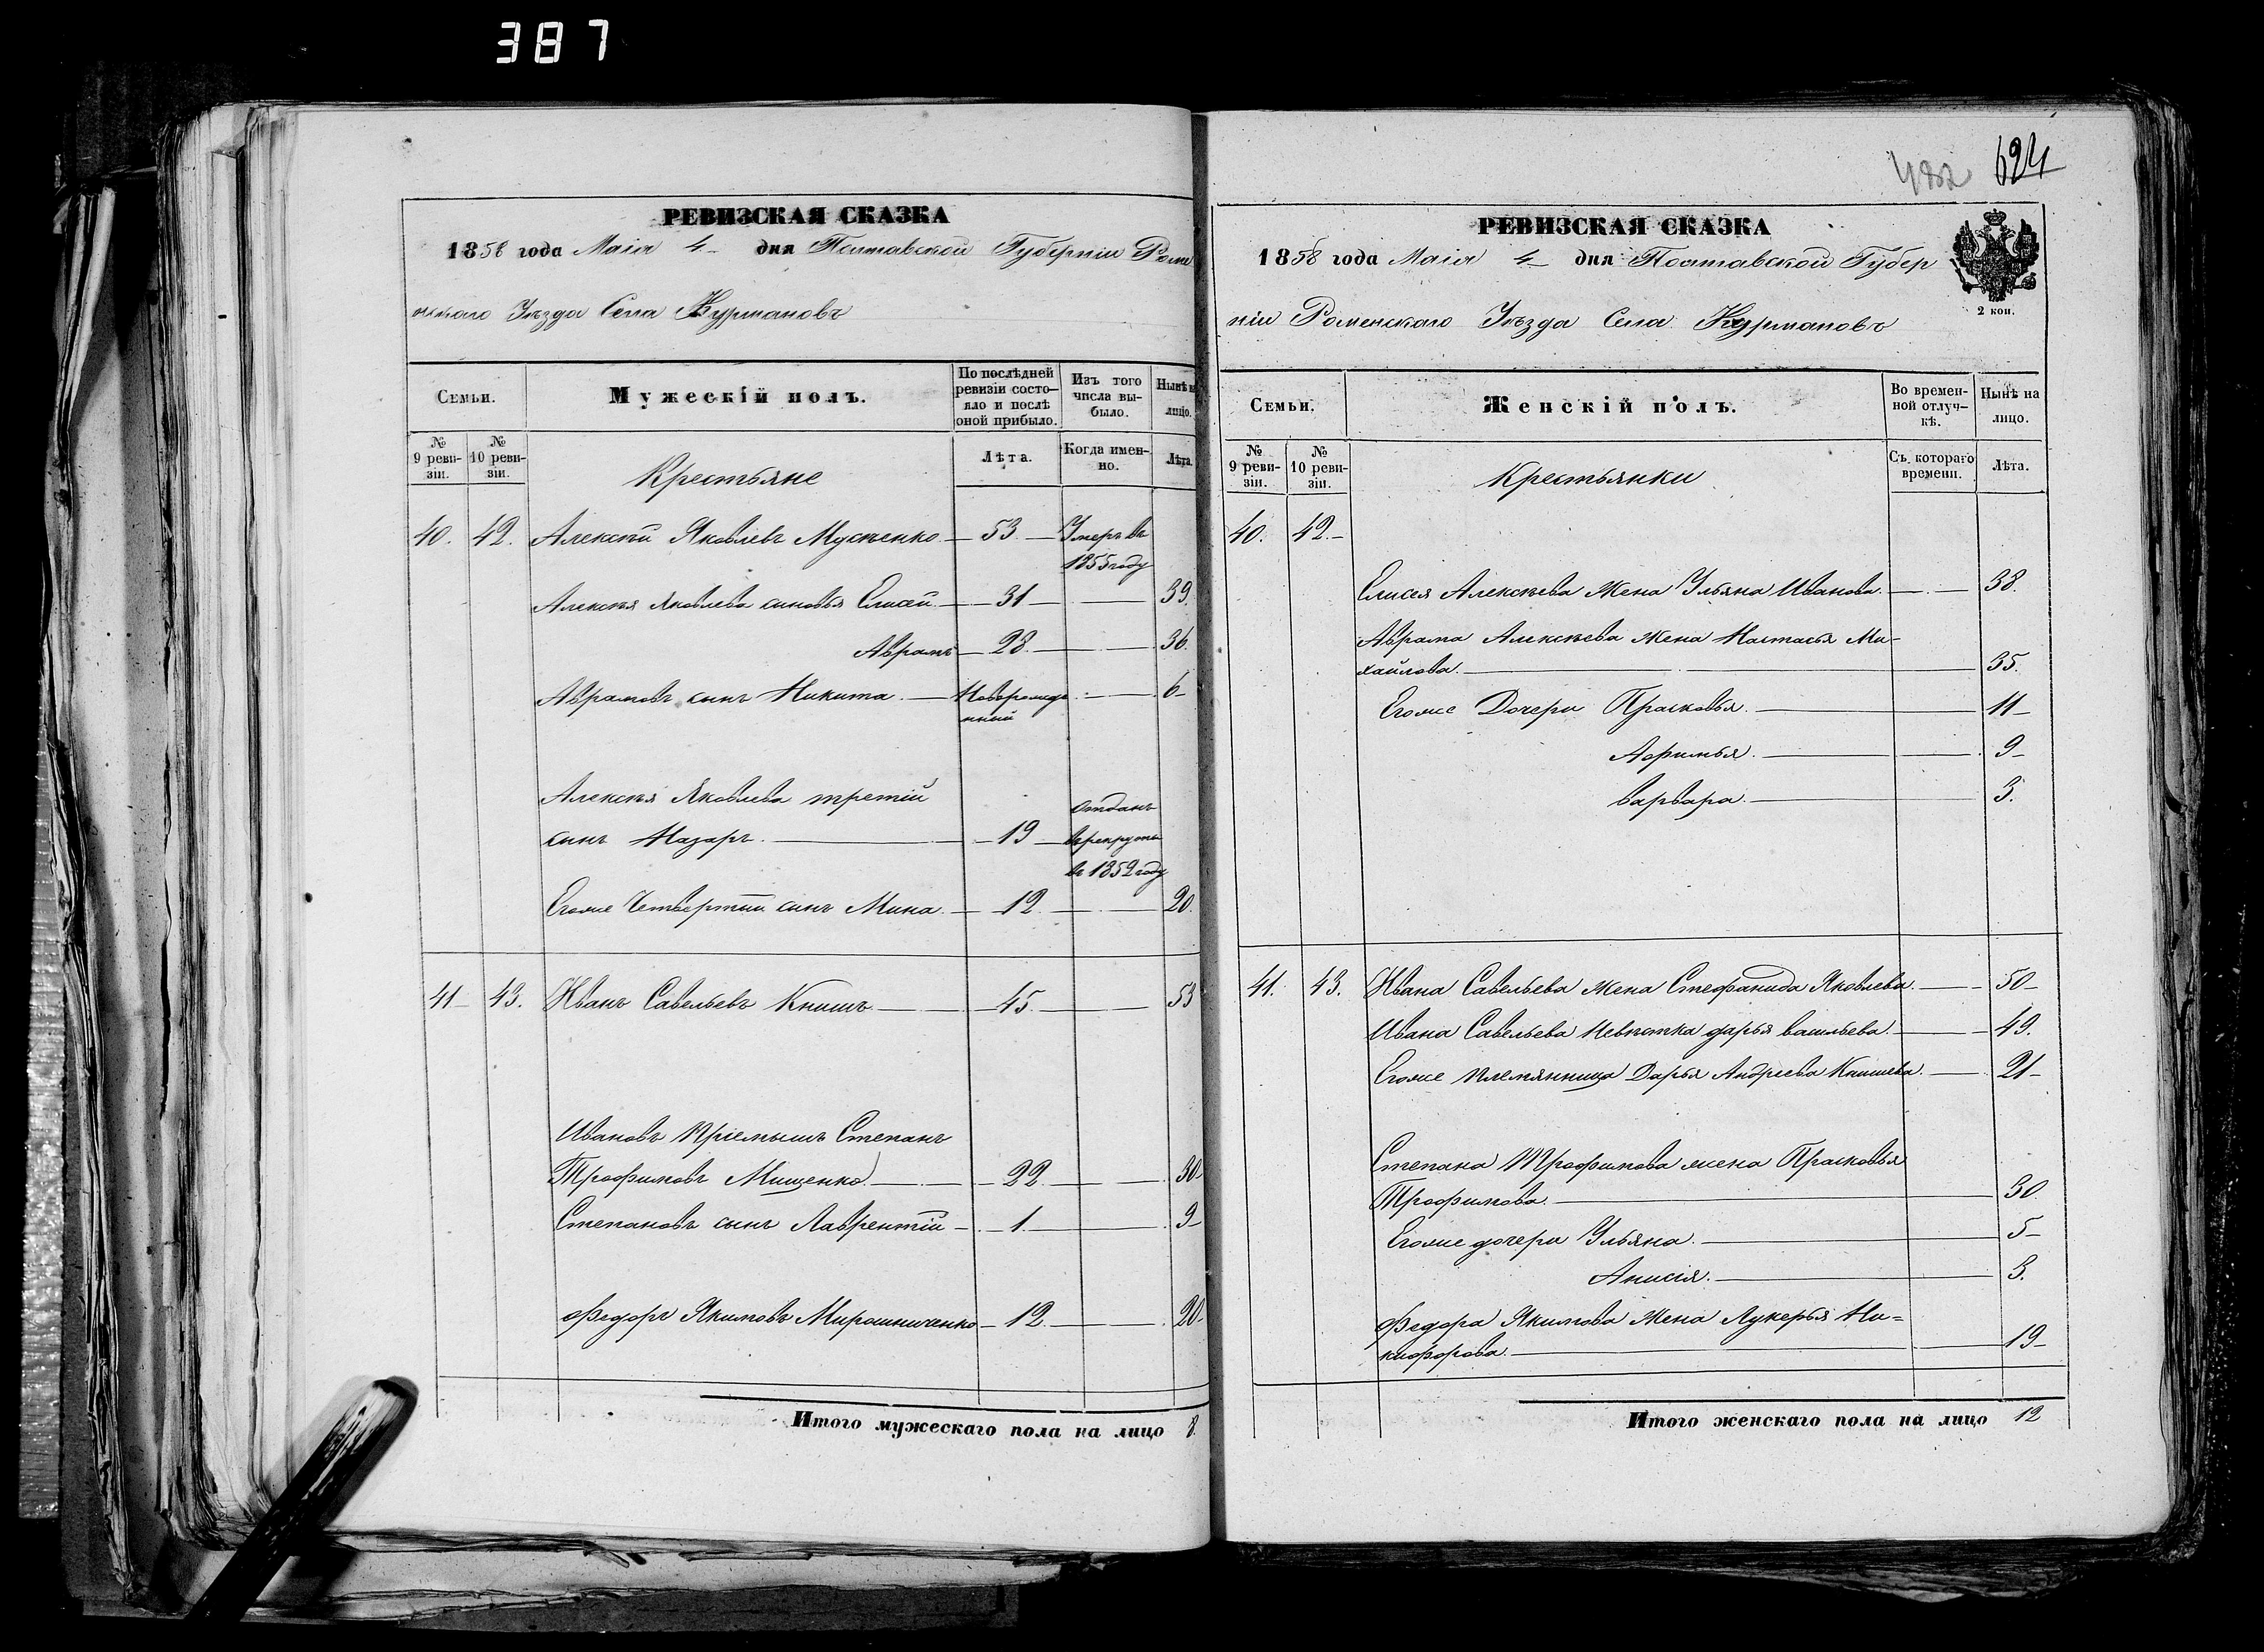 387
РЕВИЗСКАЯ СКАЗКА
1858 года Маія 4 дня Полтавской Губерніи Ромен
скаго Уѣзда Села Курмановъ
Семьи.
Мужескій полъ.
По послѣдней ревизіи состояло и послѣ оной прибыло.
Изъ того числа выбыло.
Нынѣ на лицо.
№ 9 ревизіи.
№ 10 ревизіи.
Крестьяне
Лѣта.
Когда именно.
Лѣта.
40. 42. Алексѣй Яковлевъ Мусѣенко 53 Умеръ въ
1855 году
Алексѣя Яковлева сыновья Елисей 31 39.
Аврамъ 28 36.
Аврамовъ сынъ Никита Новорожде 6
нный
Алексѣя Яковлева третій Отданъ
сынъ Назаръ 19 врекруты
въ 1852 году
Егоже Четвертый сынъ Мина 12 20.
41 43. Иванъ Савельевъ Книшъ 45 53
Ивановъ Пріемышъ Степанъ
Трофимовъ Мищенко 22 30
Степановъ сынъ Лаврентій 1 9
Федоръ Якимовъ Мирошниченко 12 20
Итого мужескаго пола на лицо 8.
482 624
РЕВИЗСКАЯ СКАЗКА
1858 года Маія 4 дня Полтавской Губер
ніи Роменскаго Уѣзда Села Курмановъ
2 коп.
Семьи.
Женскій полъ.
Во временной отлучкѣ.
Нынѣ на лицо.
№ 9 ревизіи.
№ 10 ревизіи.
Крестьянки
Съ котораго времени.
Лѣта.
40. 42
Елисея Алексѣева Жена Ульяна Иванова 38.
Аврама Алексѣева Жена Настасья Ми-
хайлова 35.
Егоже Дочери Прасковья 11
Афимья 9
Варвара 3.
41. 43. Ивана Савельева Жена Стефанида Яковлева 50
Ивана Савельева Невѣстка дарья васильева 49.
Егоже племянница Дарья Андреева Книшева 21
Степана Трофимова жена Прасковья
Трофимова 30
Егоже дочери Ульяна 5
Анисія 3.
Федора Якимова Жена Лукерья Ни=
кифорова 19
Итого женскаго пола на лицо 12